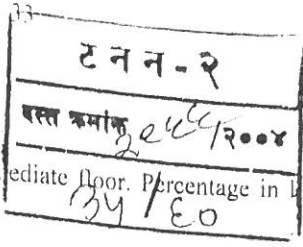 33
ट न न - २
दस्त क्रमांक /२००४
ediate floor. Percentage in
३५ / ६०